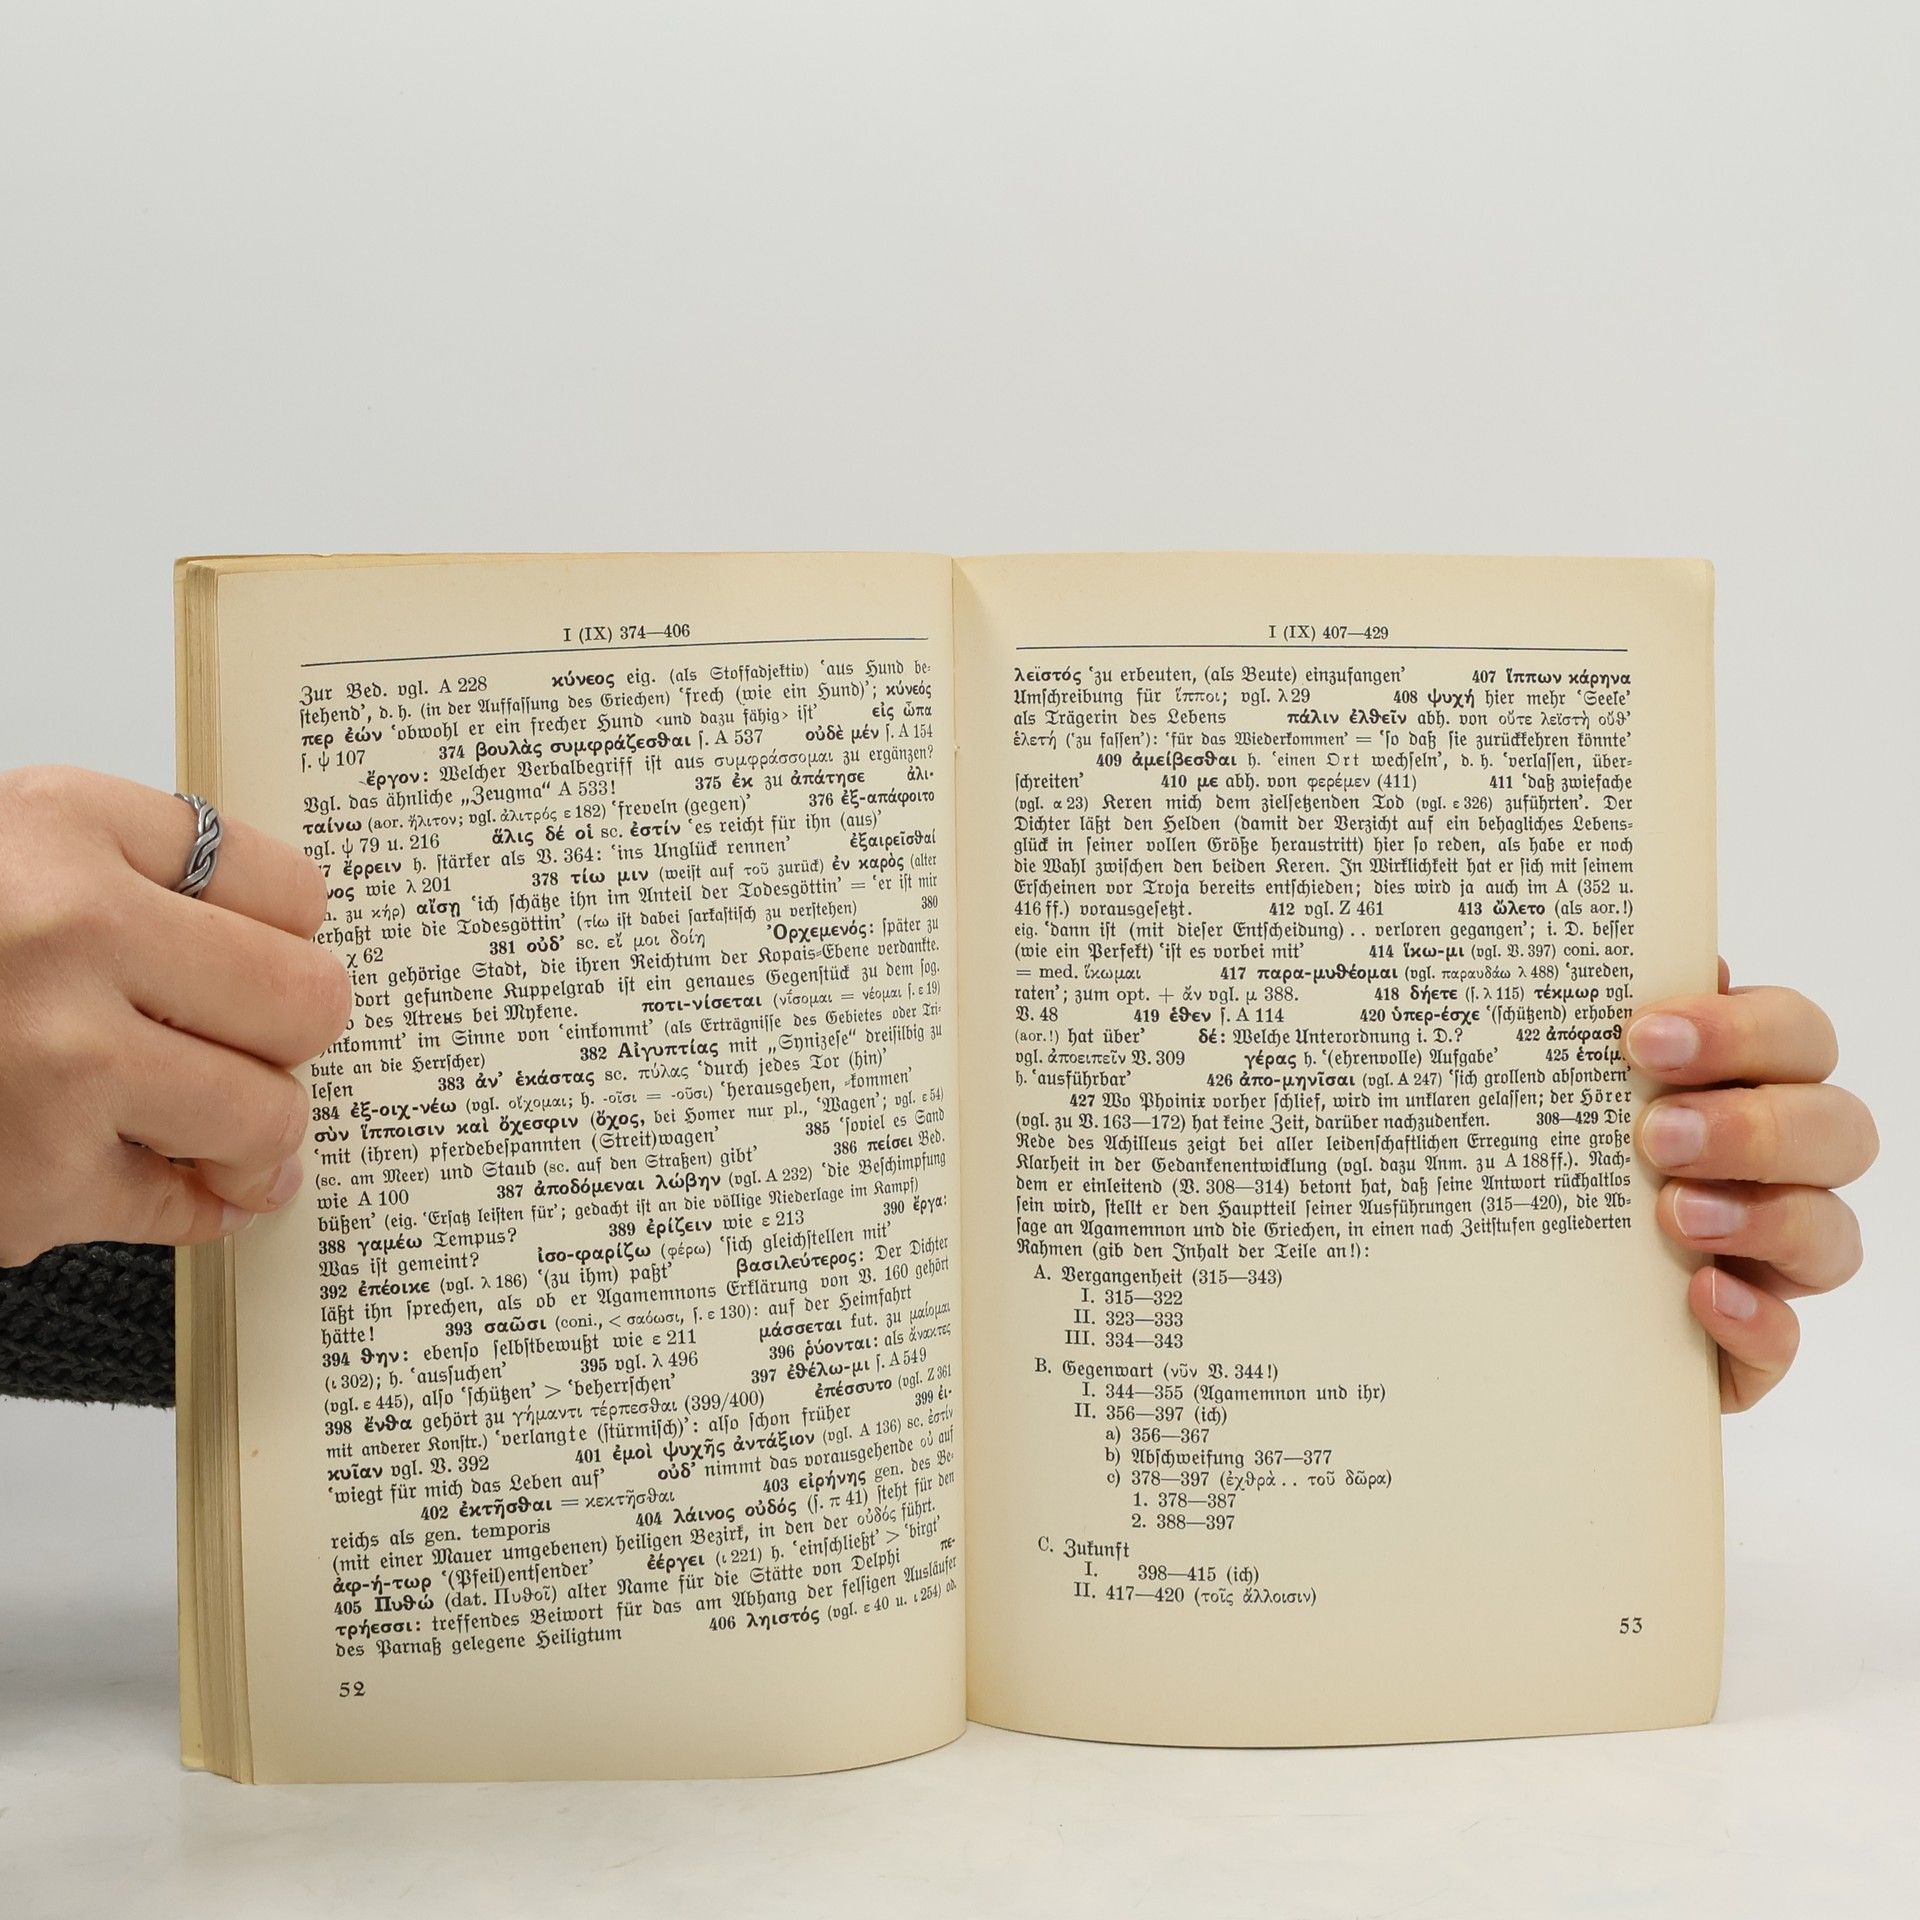 I (IX) 374—406
Zur Bed. vgl. A 228 κύνεος eig. (als Stoffadjektiv) ‘aus Hund be-
stehend’, d. h. (in der Auffassung des Griechen) ‘frech (wie ein Hund)’; κύνεός
περ ἐών ‘obwohl er ein frecher Hund ‹und dazu fähig› ist’ εἰς ὦπα
s. ψ 107 374 βουλὰς συμφράζεσθαι s. A 537 οὐδὲ μέν s. A 154
ἔργον: Welcher Verbalbegriff ist aus συμφράσσομαι zu ergänzen?
Vgl. das ähnliche „Zeugma“ A 533! 375 ἐκ zu ἀπάτησε ἀλι-
ταίνω (aor. ἤλιτον; vgl. ἀλιτρός ε 182) ‘freveln (gegen)’ 376 ἐξ-απάφοιτο
vgl. ψ 79 u. 216 ἅλις δέ οἱ sc. ἐστίν ‘es reicht für ihn (aus)’
ἔρρειν h. stärker als V. 364: ‘ins Unglück rennen’ ἐξαιρεῖσθαί
wie λ 201 378 τίω μιν (weist auf τοῦ zurück) ἐν καρὸς (alter
zu κήρ) αἴσῃ ‘ich schätze ihn im Anteil der Todesgöttin’ = ‘er ist mir
wie die Todesgöttin’ (τίω ist dabei sarkastisch zu verstehen) 380
χ 62 381 οὐδ’ sc. εἴ μοι δοίη Ὀρχεμενός: später zu
gehörige Stadt, die ihren Reichtum der Kopais-Ebene verdankte.
dort gefundene Kuppelgrab ist ein genaues Gegenstück zu dem sog.
des Atreus bei Mykene. ποτι-νίσεται (νίσομαι = νέομαι s. ε 19)
im Sinne von ‘einkommt’ (als Erträgnisse des Gebietes oder Tri-
bute an die Herrscher) 382 Αἰγυπτίας mit „Synizese“ dreisilbig zu
lesen 383 ἀν’ ἑκάστας sc. πύλας ‘durch jedes Tor (hin)’
384 ἐξ-οιχ-νέω (vgl. οἴχομαι; h. -οῖσι = -οῦσι) ‘herausgehen, -kommen’
σὺν ἵπποισιν καὶ ὄχεσφιν (ὄχος, bei Homer nur pl., ‘Wagen’; vgl. ε 54)
‘mit (ihren) pferdebespannten (Streit)wagen’ 385 ‘soviel es Sand
(sc. am Meer) und Staub (sc. auf den Straßen) gibt’ 386 πείσει Bed.
wie A 100 387 ἀποδόμεναι λώβην (vgl. A 232) ‘die Beschimpfung
büßen’ (eig. ‘Ersatz leisten für’; gedacht ist an die völlige Niederlage im Kampf)
388 γαμέω Tempus? 389 ἐρίζειν wie ε 213 390 ἔργα:
Was ist gemeint? ἰσο-φαρίζω (φέρω) ‘sich gleichstellen mit’
392 ἐπέοικε (vgl. λ 186) ‘(zu ihm) paßt’ βασιλεύτερος: Der Dichter
läßt ihn sprechen, als ob er Agamemnons Erklärung von V. 160 gehört
hätte! 393 σαῶσι (coni., < σαόωσι, s. ε 130): auf der Heimfahrt
394 θην: ebenso selbstbewußt wie ε 211 μάσσεται fut. zu μαίομαι
(ι 302); h. ‘aussuchen’ 395 vgl. λ 496 396 ῥύονται: als ἄνακτες
(vgl. ε 445), also ‘schützen’ > ‘beherrschen’ 397 ἐθέλω-μι s. A 549
398 ἔνθα gehört zu γήμαντι τέρπεσθαι (399/400) ἐπέσσυτο (vgl. Z 361
mit anderer Konstr.) ‘verlangte (stürmisch)’: also schon früher 399 ἐι-
κυῖαν vgl. V. 392 401 ἐμοὶ ψυχῆς ἀντάξιον (vgl. A 136) sc. ἐστίν
‘wiegt für mich das Leben auf’ οὐδ’ nimmt das vorausgehende οὐ auf
402 ἐκτῆσθαι = κεκτῆσθαι 403 εἰρήνης gen. des Be-
reichs als gen. temporis 404 λάινος οὐδός (s. π 41) steht für den
(mit einer Mauer umgebenen) heiligen Bezirk, in den der οὐδός führt.
ἀφ-ή-τωρ ‘(Pfeil)entsender’ ἐέργει (ι 221) h. ‘einschließt’ > ‘birgt’
405 Πυθώ (dat. Πυθοῖ) alter Name für die Stätte von Delphi πε-
τρήεσσι: treffendes Beiwort für das am Abhang der felsigen Ausläufer
des Parnaß gelegene Heiligtum 406 ληιστός (vgl. ε 40 u. ι 254) od.
52
I (IX) 407—429
λεϊστός ‘zu erbeuten, (als Beute) einzufangen’ 407 ἵππων κάρηνα
Umschreibung für ἵπποι; vgl. λ 29 408 ψυχή hier mehr ‘Seele’
als Trägerin des Lebens πάλιν ἐλθεῖν abh. von οὔτε λεϊστὴ οὔθ’
ἑλετή (‘zu fassen’): ‘für das Wiederkommen’ = ‘so daß sie zurückkehren könnte’
409 ἀμείβεσθαι h. ‘einen Ort wechseln’, d. h. ‘verlassen, über-
schreiten’ 410 με abh. von φερέμεν (411) 411 ‘daß zwiefache
(vgl. α 23) Keren mich dem zielsetzenden Tod (vgl. ε 326) zuführten’. Der
Dichter läßt den Helden (damit der Verzicht auf ein behagliches Lebens-
glück in seiner vollen Größe heraustritt) hier so reden, als habe er noch
die Wahl zwischen den beiden Keren. In Wirklichkeit hat er sich mit seinem
Erscheinen vor Troja bereits entschieden; dies wird ja auch im A (352 u.
416 ff.) vorausgesetzt. 412 vgl. Z 461 413 ὤλετο (als aor.!)
eig. ‘dann ist (mit dieser Entscheidung) . . verloren gegangen’; i. D. besser
(wie ein Perfekt) ‘ist es vorbei mit’ 414 ἵκω-μι (vgl. V. 397) coni. aor.
= med. ἵκωμαι 417 παρα-μυθέομαι (vgl. παραυδάω λ 488) ‘zureden,
raten’; zum opt. + ἄν vgl. μ 388. 418 δήετε (s. λ 115) τέκμωρ vgl.
V. 48 419 ἑθεν s. A 114 420 ὑπερ-έσχε ‘(schützend) erhoben
(aor.!) hat über’ δέ: Welche Unterordnung i. D.? 422 ἀπόφασθ
vgl. ἀποειπεῖν V. 309 γέρας h. ‘(ehrenvolle) Aufgabe’ 425 ἑτοίμ
h. ‘ausführbar’ 426 ἀπο-μηνῖσαι (vgl. A 247) ‘sich grollend absondern’
427 Wo Phoinix vorher schlief, wird im unklaren gelassen; der Hörer
(vgl. zu V. 163—172) hat keine Zeit, darüber nachzudenken. 308—429 Die
Rede des Achilleus zeigt bei aller leidenschaftlichen Erregung eine große
Klarheit in der Gedankenentwicklung (vgl. dazu Anm. zu A 188 ff.). Nach-
dem er einleitend (V. 308—314) betont hat, daß seine Antwort rückhaltlos
sein wird, stellt er den Hauptteil seiner Ausführungen (315—420), die Ab-
sage an Agamemnon und die Griechen, in einen nach Zeitstufen gegliederten
Rahmen (gib den Inhalt der Teile an!):
A. Vergangenheit (315—343)
I. 315—322
II. 323—333
III. 334—343
B. Gegenwart (νῦν V. 344!)
I. 344—355 (Agamemnon und ihr)
II. 356—397 (ich)
a) 356—367
b) Abschweifung 367—377
c) 378—397 (ἐχθρὰ . . τοῦ δῶρα)
1. 378—387
2. 388—397
C. Zukunft
I. 398—415 (ich)
II. 417—420 (τοῖς ἄλλοισιν)
53